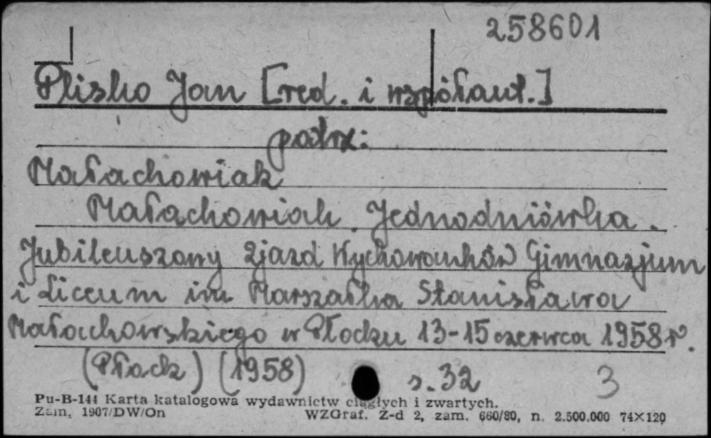 258601
Plisko Jan [red. i współaut.]
patrz:
Małachowiak
Małachowiak. Jednodniówka.
Jubileuszowy Zjazd Wychowanków Gimnazjum
i Liceum im Marszałka Stanisława
Małachowskiego w Płocku 13-15 czerwca 1958 r.
(Płock) (1958) s. 32 3
Pu-B-144 Karta katalogowa wydawnictw ciągłych i zwartych.
Zam. 1907/DW/On WZGraf. Z-d 2, zam. 660/80, n. 2.500.000 74×120